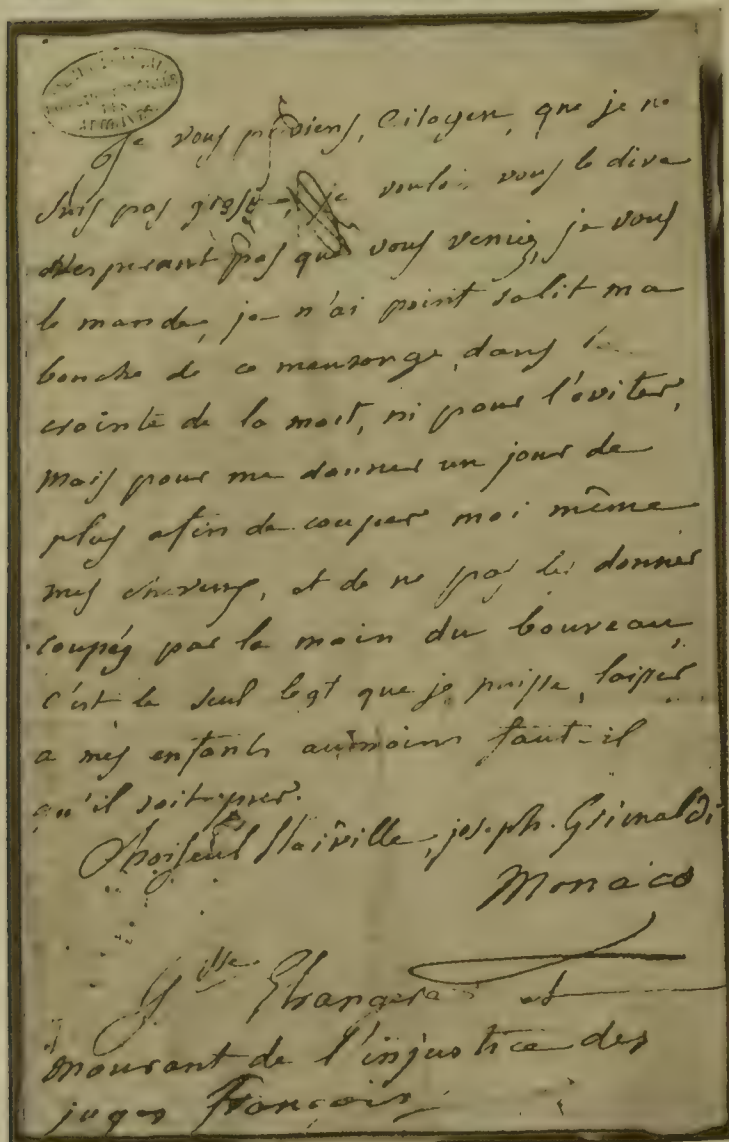 je vous préviens, Citoyen, que je ne
suis pas grosse, je voulois vous le dire
n'esperant pas que vous veniez, je vous
le mande, je n'ai point salit ma
bouche de ce mensonge, dans la
crainte de la mort, ni pour l'eviter,
mais pour me donner un jour de
plus afin de couper moi même
mes cheveux, et de ne pas les donner
coupés par la main du boureau,
c'est le seul legt que je puisse laisser
a mes enfants aumoins faut-il
qu'il soit pur.
Choiseul Stainville, joseph. Grimaldi
Monaco
Etrangere et
mourant de l'injustice des
juges françois